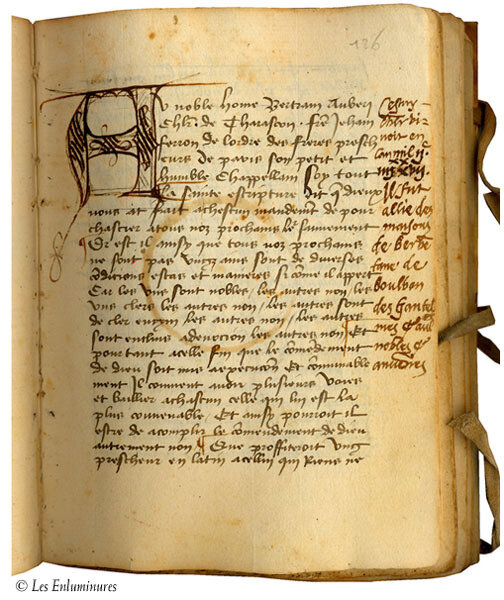 126
Au noble home Bertram Auberi
Chlr de Tharascon. Fre Jehan
Ferron de lordre des freres presch
eurs de paris son petit et
humble Chappellain soy tout
La sainte escripture dit que dieux
nous at fait a chescun mandemet de pour
chascier a tous noz prochains le sauuement
Or est il ainsy que tous noz prochains
ne sont pas vngz ains sont de diverses
condicions estas et manieres si come il appert
Car les vns sont nobles, les autres non, les
vns clers les autres non, les autres sont
de cler engin les autres non, les autres
sont enclins a deuocion les autres non, Et
pourtant a celle fin que le comendement
de dieu soit mis a execucion et conuinable
ment Il conuient auoir plusieurs voies
et baillier a chascun celle qui lui est la
plus conuenable, Et ainsy pourroit il
estre de acomplir le comendement de dieu
autrement non, Que proffiteroit vng
prescheur en latin a cellui qui Riens ne
viuoit en
lan mil
Il fut
allie des
maisons
de Berbe
tane de
Boulbon
des Gantel
mes &
nobles &
© Les Enluminures